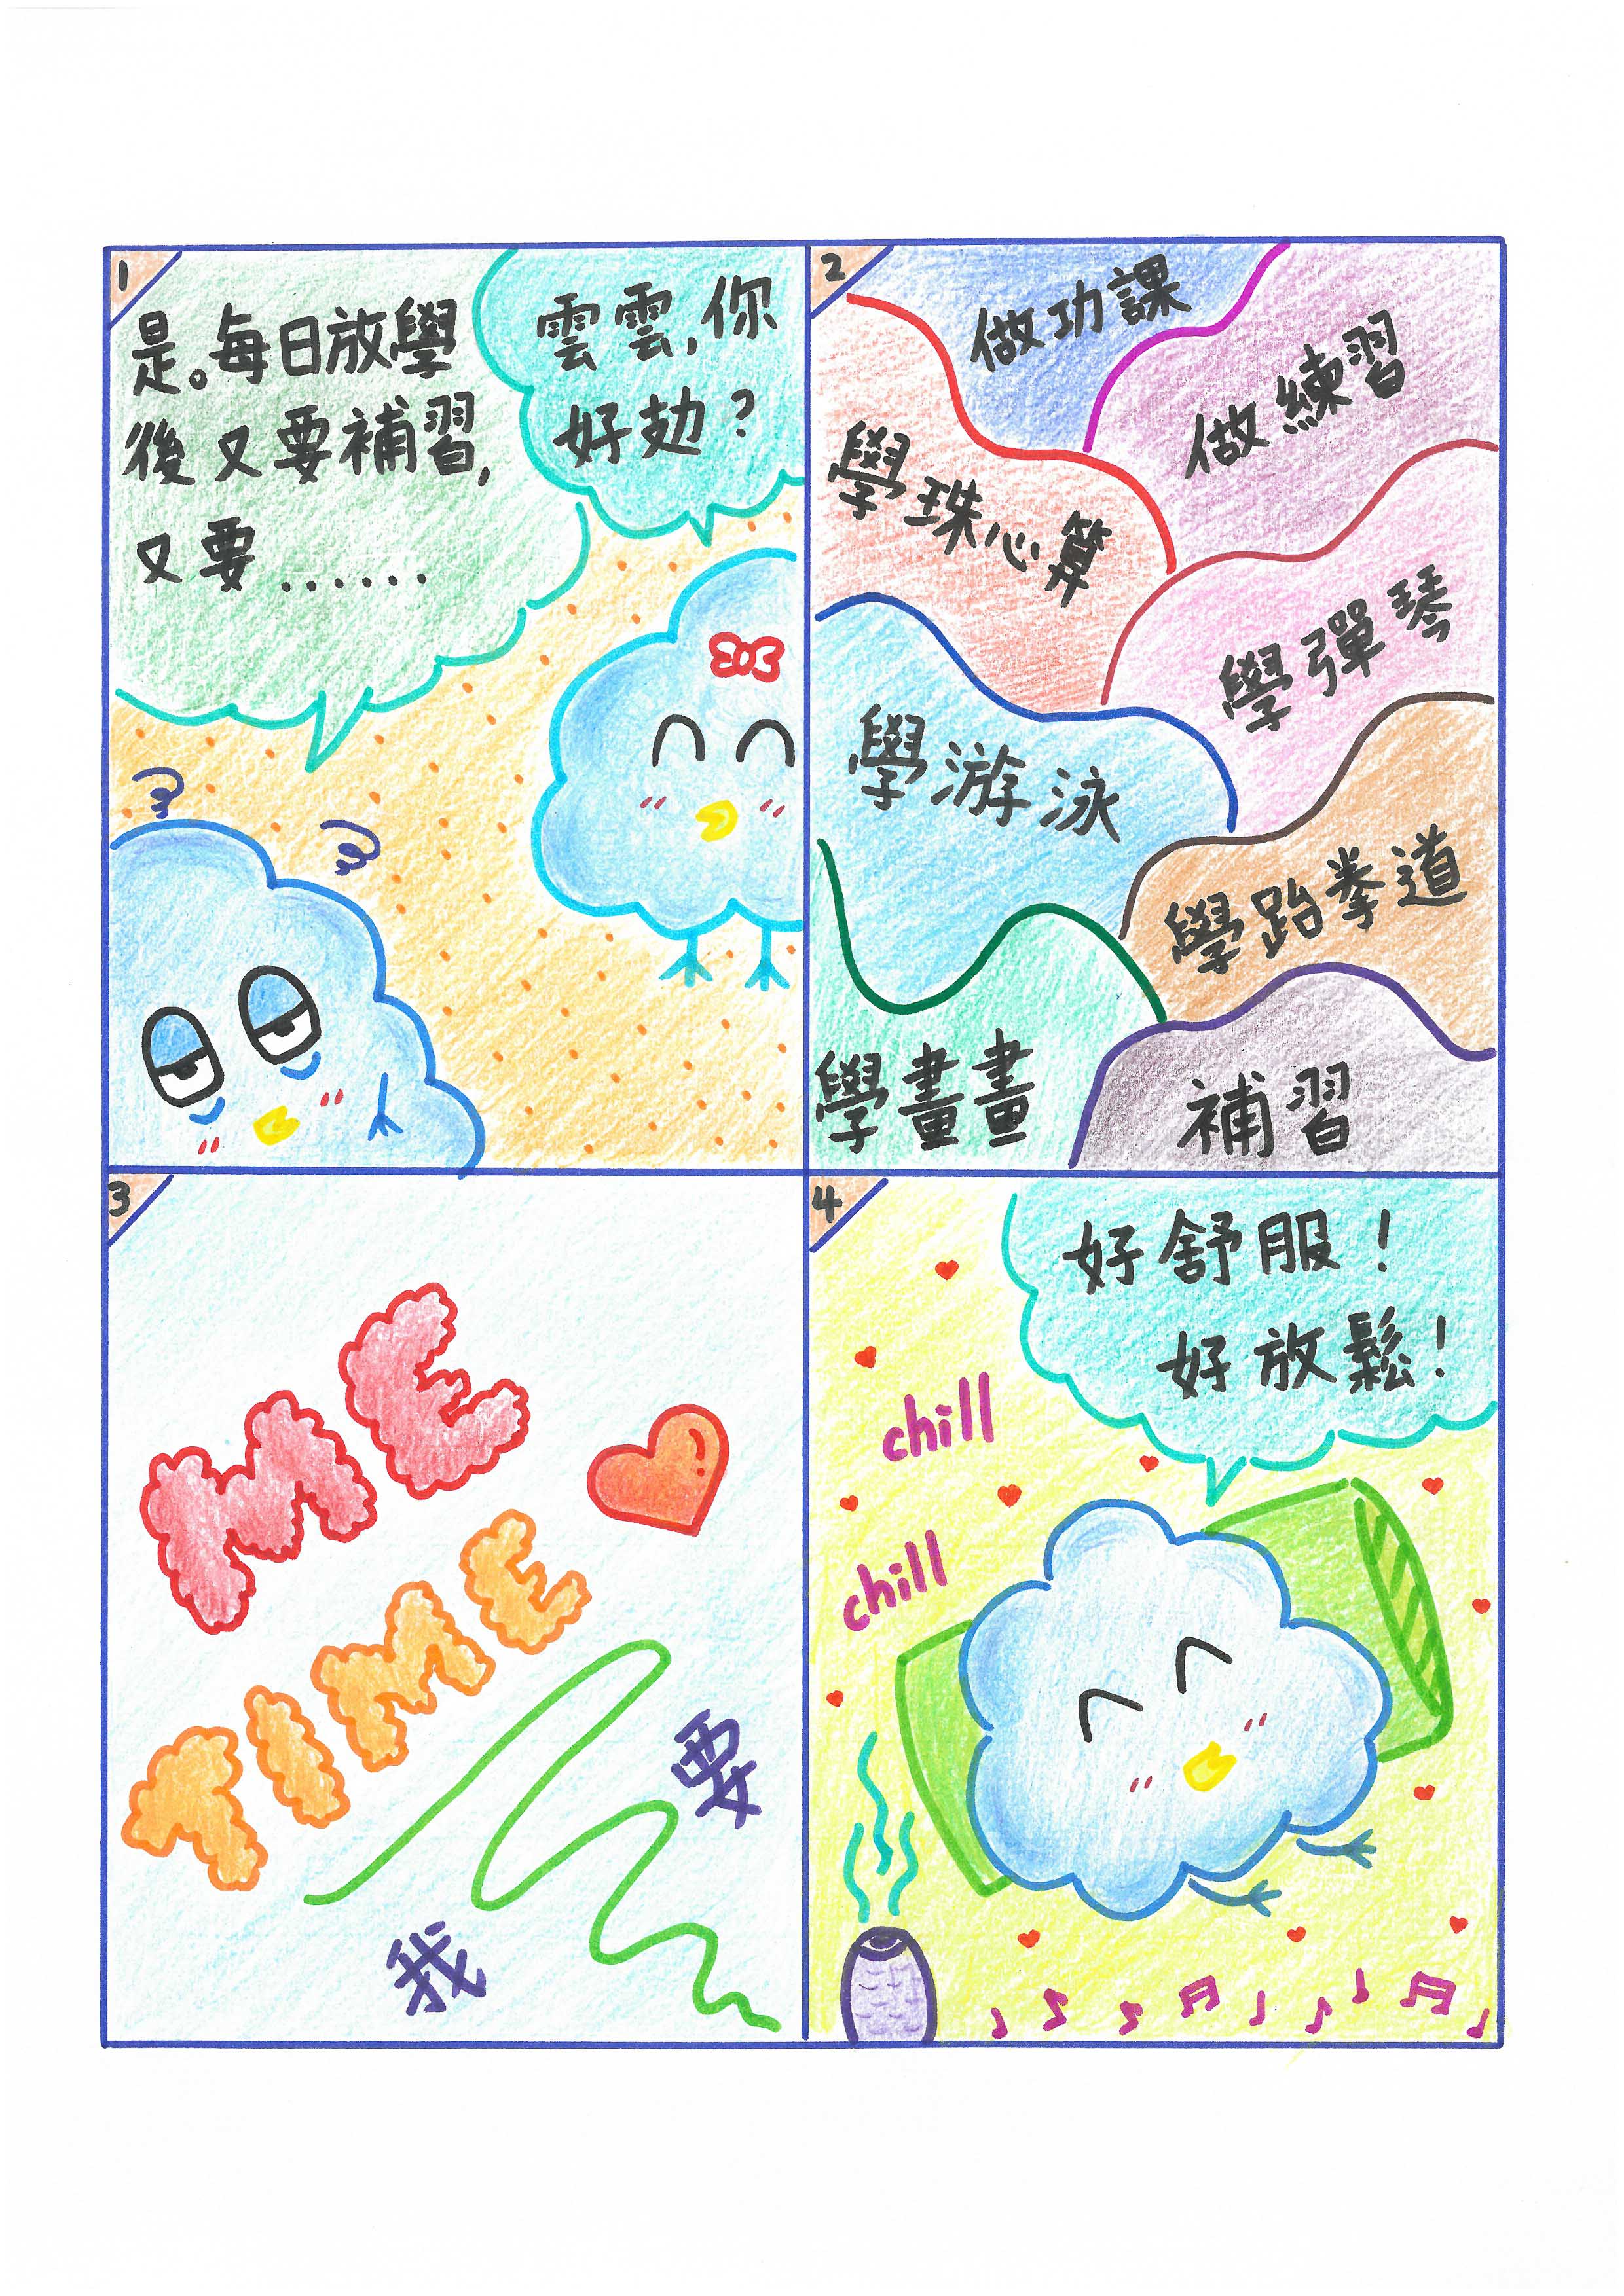 1
雲雲,你
好攰?
是。每日放學
後又要補習,
又要......
2
做功課
做練習
學珠心算
學彈琴
學游泳
學跆拳道
學畫畫
補習
3
ME
TIME
我
要
4
好舒服!
好放鬆!
chill
chill